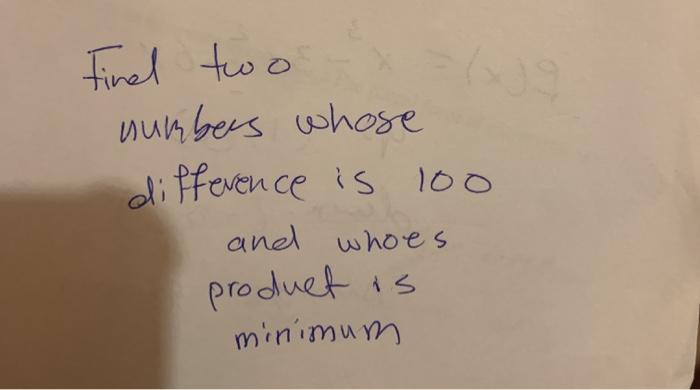 Find two
numbers whose
difference is 100
and whoes
product is
minimum